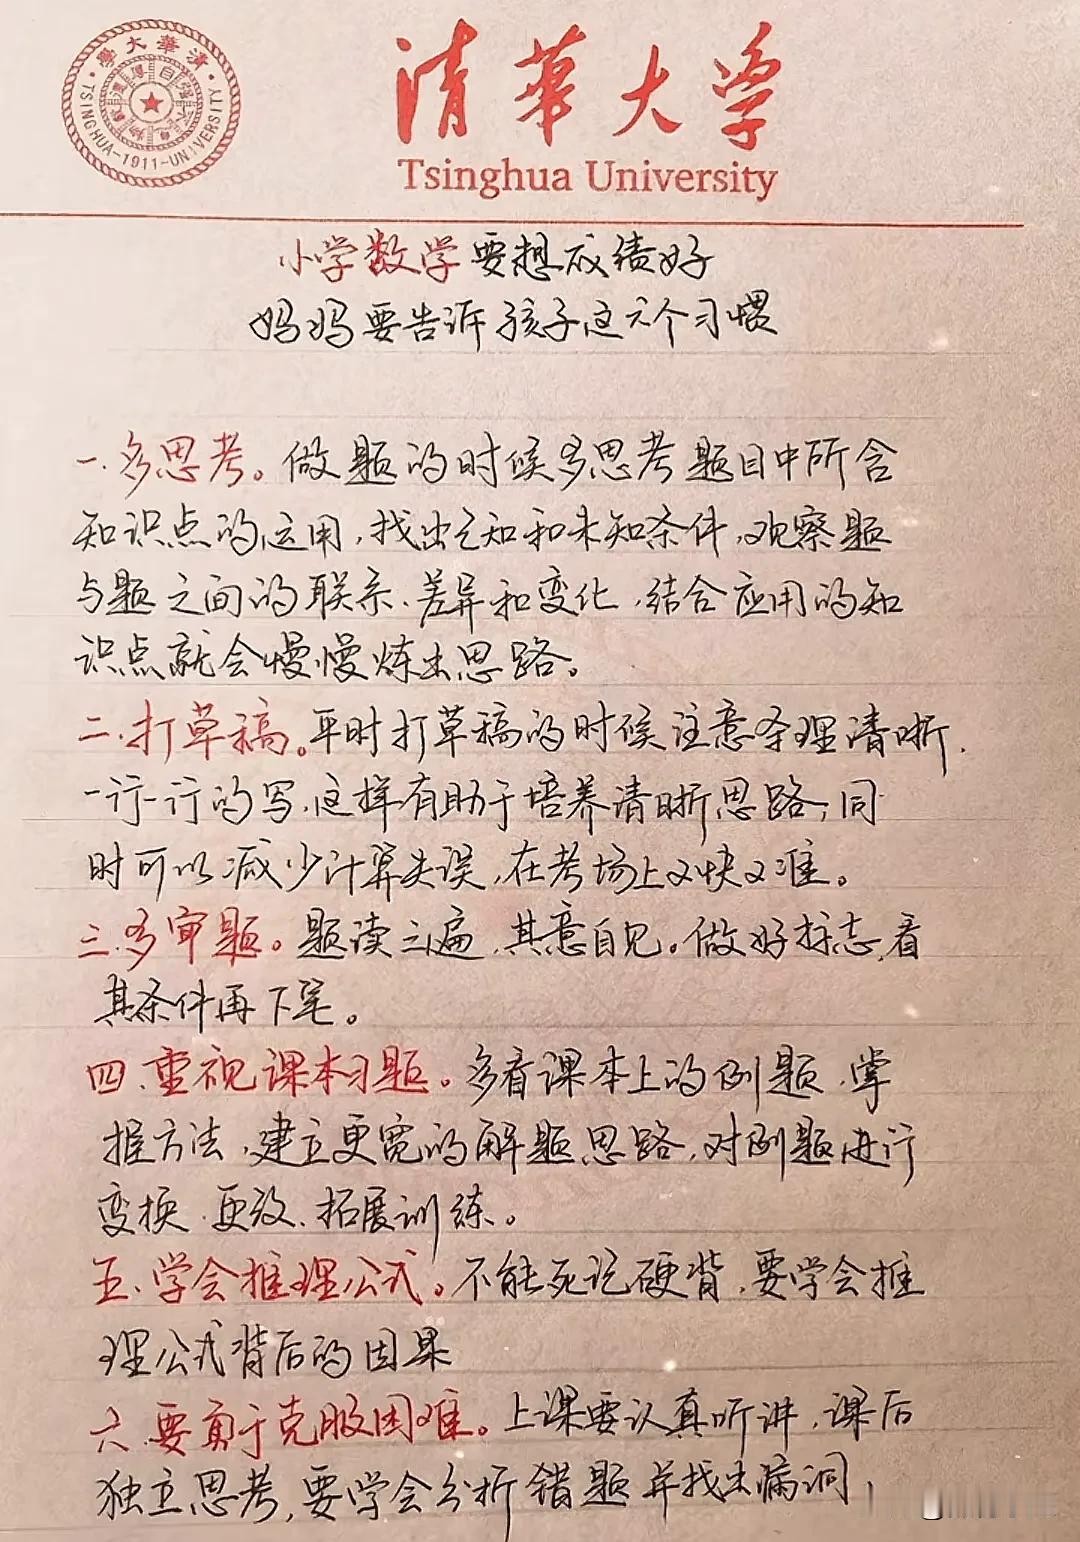 清華大学
Tsinghua University
清華大學
·TSINGHUA-1911-UNIVERSITY·
小学数学要想成绩好
妈妈要告诉孩子这六个习惯
一.多思考。做题的时候多思考题目中所含
知识点的运用,找出已知和未知条件,观察题
与题之间的联系、差异和变化,结合应用的知
识点就会慢慢炼出思路。
二.打草稿。平时打草稿的时候注意条理清晰,
一行一行的写,这样有助于培养清晰思路,同
时可以减少计算失误,在考场上又快又准。
三.多审题。题读三遍,其意自见。做好标志,看
其条件再下笔。
四、重视课本习题。多看课本上的例题,掌
握方法,建立更宽的解题思路,对例题进行
变换、更改、拓展训练。
五、学会推理公式。不能死记硬背,要学会推
理公式背后的因果
六、要勇于克服困难。上课要认真听讲,课后
独立思考,要学会分析错题并找出漏洞,